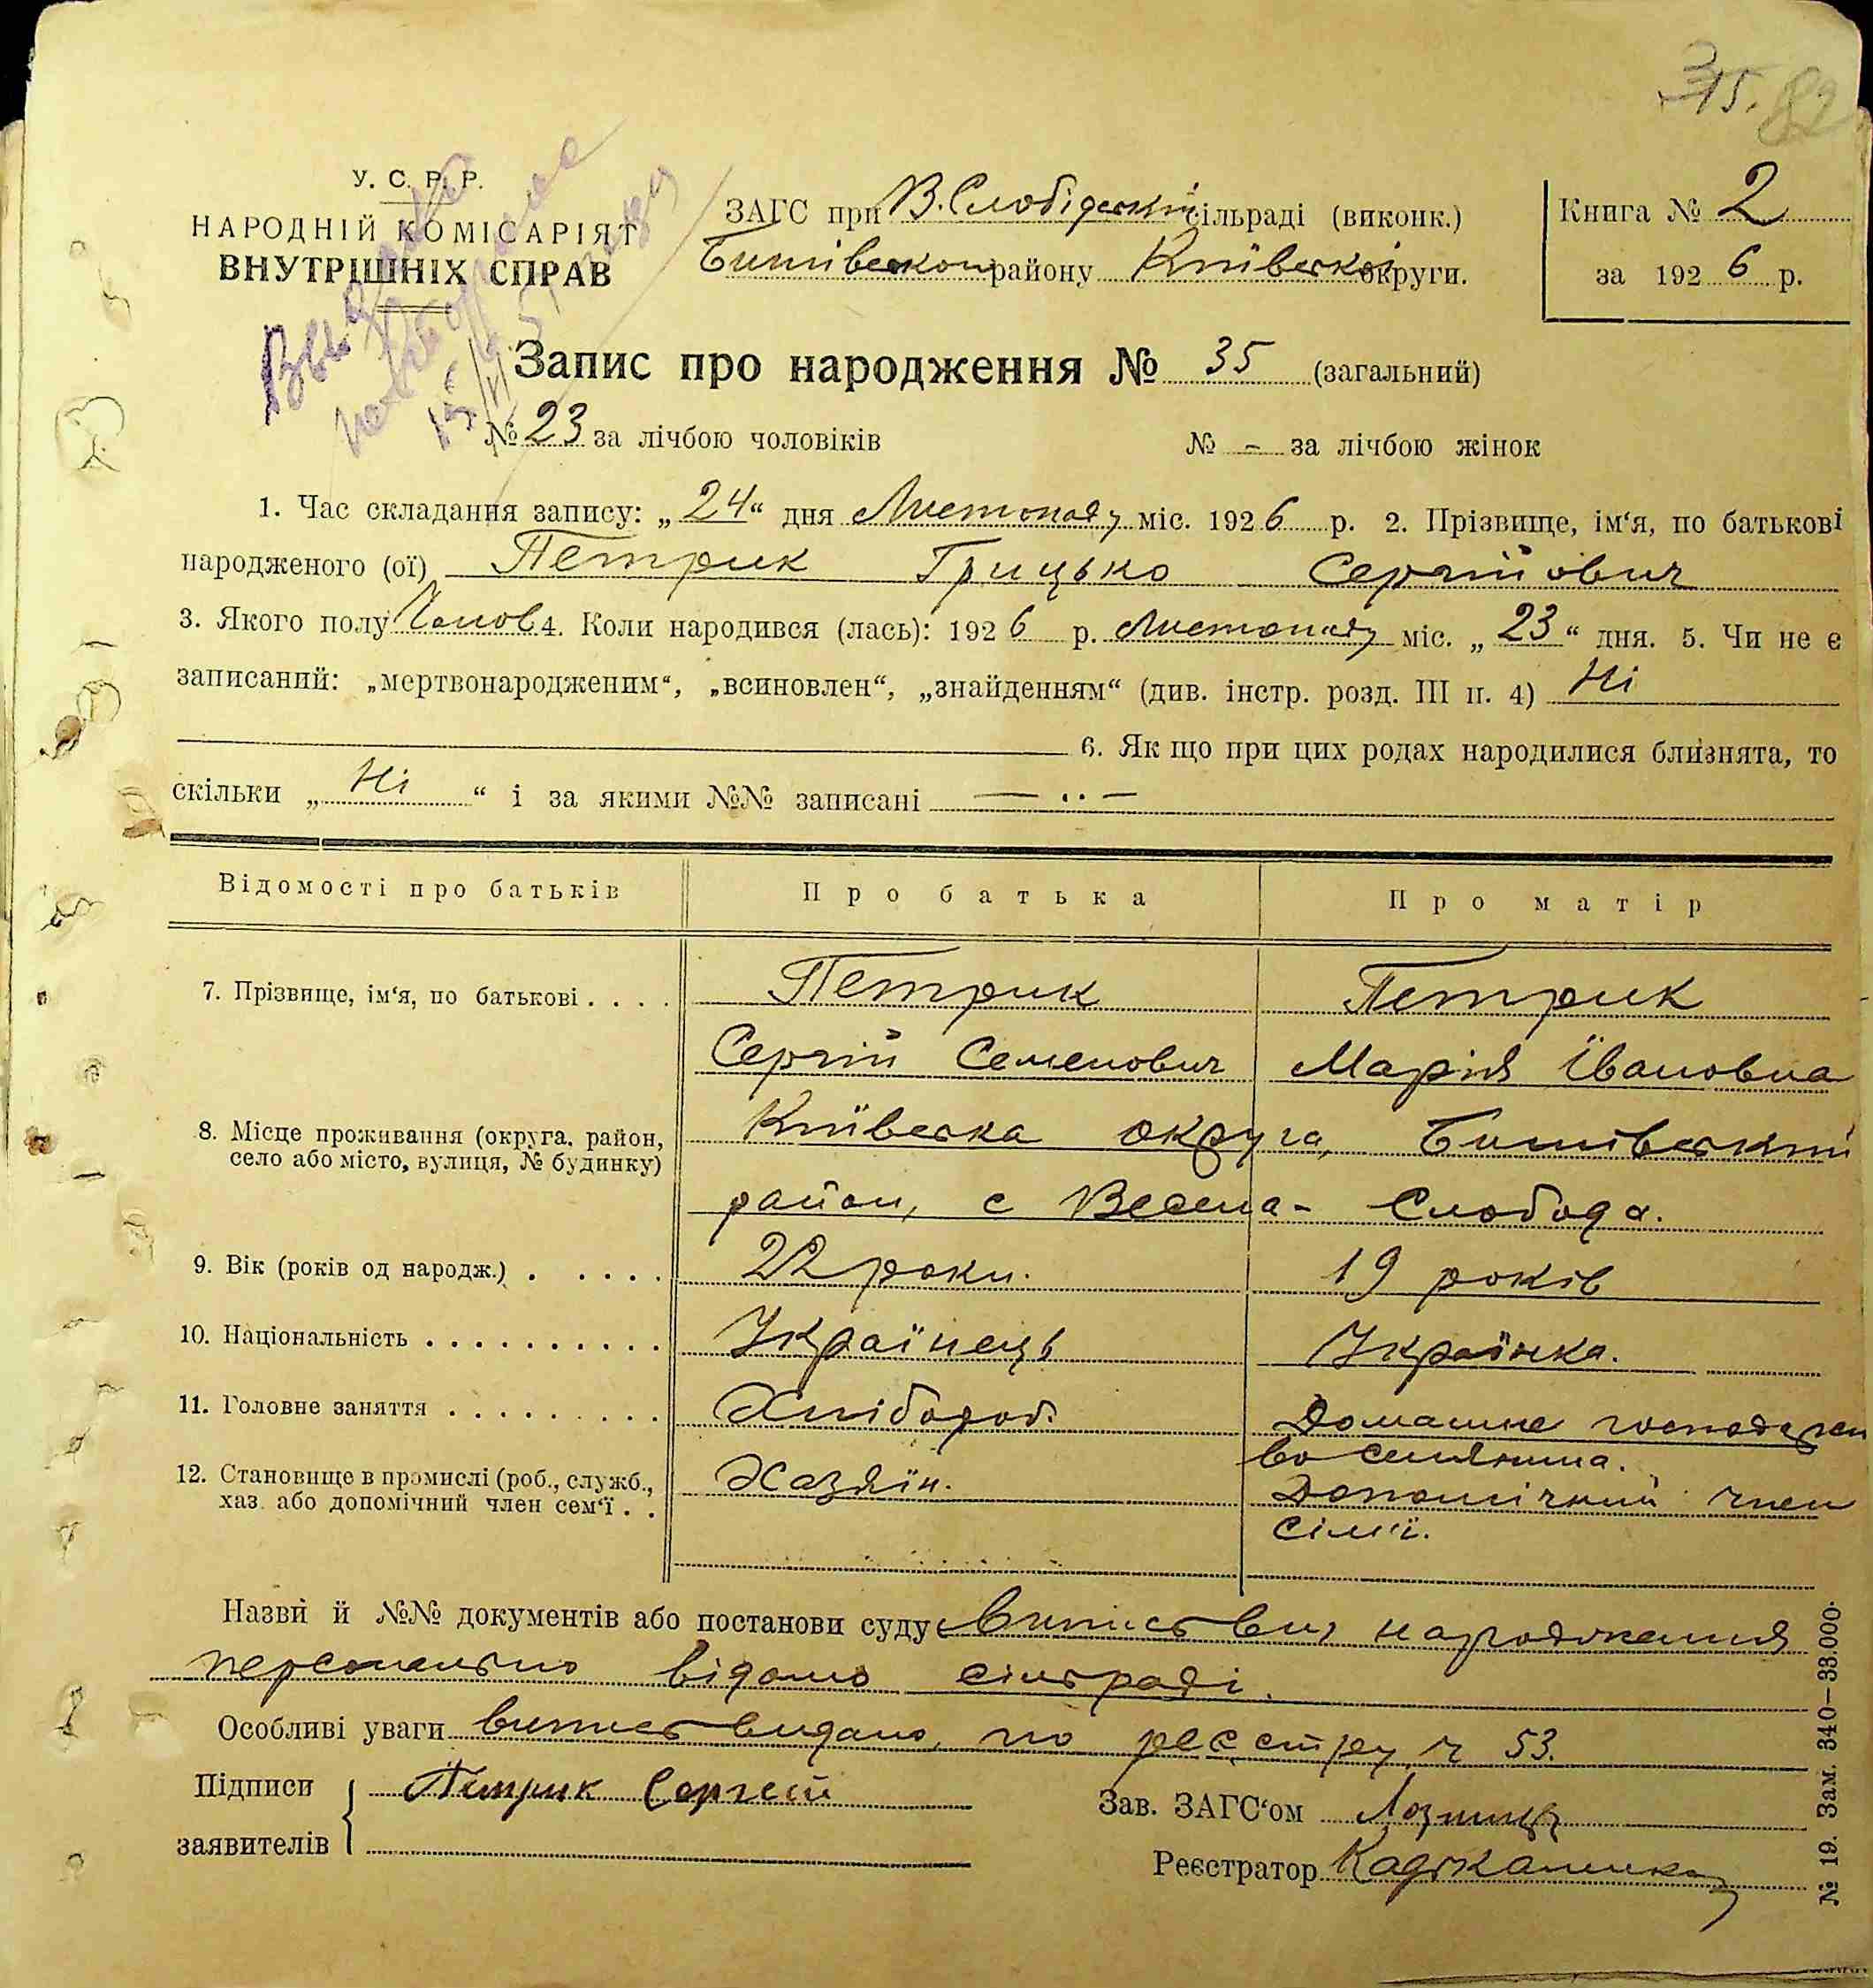 315. 82
У. С. Р. Р.
НАРОДНІЙ КОМІСАРІЯТ
ВНУТРІШНІХ СПРАВ
ЗАГС при В.Слобідській сільраді (виконк.)
Бишівського району Київської округи.
Книга № 2
за 1926 р.
Запис про народження № 35 (загальний)
№ 23 за лічбою чоловіків № - за лічбою жінок
1. Час складання запису: „24“ дня Листопаду міс. 1926 р. 2. Прізвище, ім‘я, по батькові
народженого (ої) Петрик Грицько Сергійович
3. Якого полу Чолов 4. Коли народився (лась): 1926 р. Листопаду міс. „23“ дня. 5. Чи не є
записаний: „мертвонародженим“, „всиновлен“, „знайденням“ (див. інстр. розд. III п. 4) Ні
6. Як що при цих родах народилися близнята, то
скільки „Ні“ і за якими №№ записані — ·· —
Відомості про батьків Про батька Про матір
7. Прізвище, ім‘я, по батькові . . . . Петрик Петрик
Сергій Семенович Марія Івановна
8. Місце проживання (округа, район, село або місто, вулиця, № будинку) Київська округа, Бишівський
район, с Весела- Слобода.
9. Вік (років од народж.) . . . . . 22 роки. 19 років
10. Національність . . . . . . . . . . Українець Українка.
11. Головне заняття . . . . . . . . . Хлібороб. Домашне господарст
во селянина.
12. Становище в промислі (роб., служб., хаз. або допомічний член сем‘ї . . Хазяїн. Допомічний член
сімї.
Назви й №№ документів або постанови суду Випись вид народження
персонально відомо сільраді.
Особливі уваги випись видано, по реєстру ч 53.
Підписи заявителів Петрик Сергей
Зав. ЗАГС‘ом Лозниця
Реєстратор
№ 19. Зам. 340—38.000.